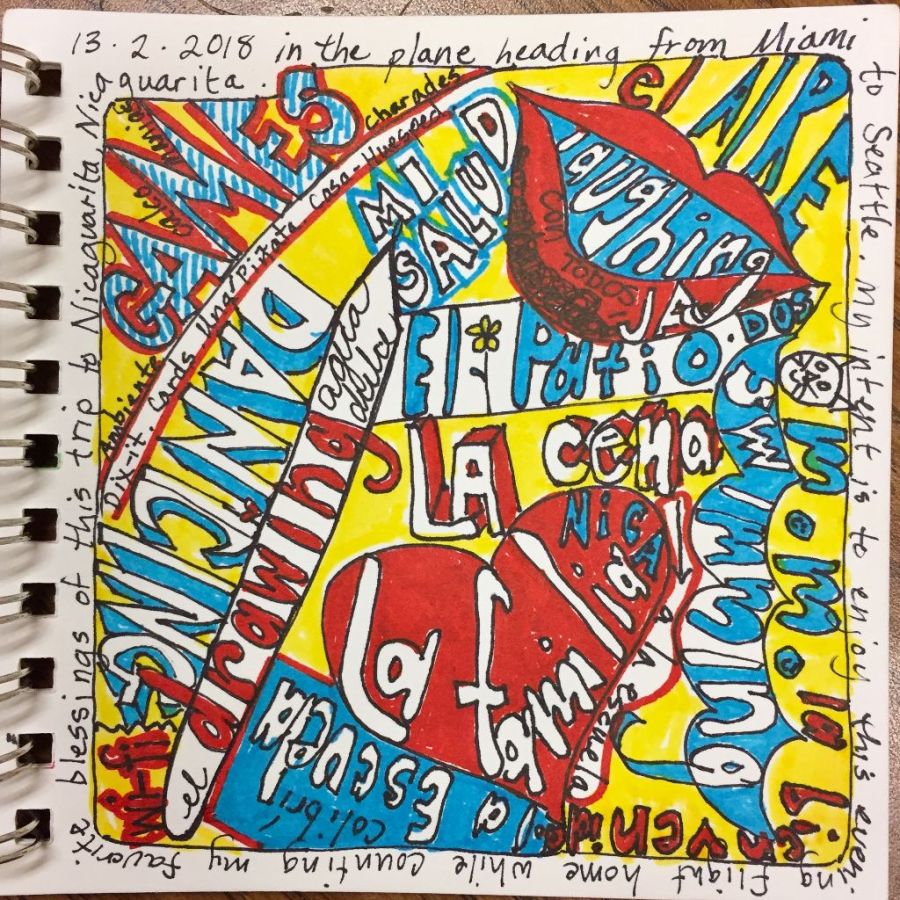 13.2.2018 in the plane heading from Miami
to Seattle. My intent is to enjoy this evening
flight home while counting my favorite
blessings of this trip to Nicaguarita Nicaguarita Nica
guarita.
GAMES
charades
Ambiente
Dix-it. Cards Una Piñata Casa-Huegoed
MI
SALUD
el AIRE
laughing
JAJ
CON
TODOS
DANCING
agua
dulce
drawing
el
El Patio.
DOS
SWIMMING
LA cena
NiCA
la familia
la escuela
la Escuela
Colibrí
wi-fi
memo la
bienvenida!